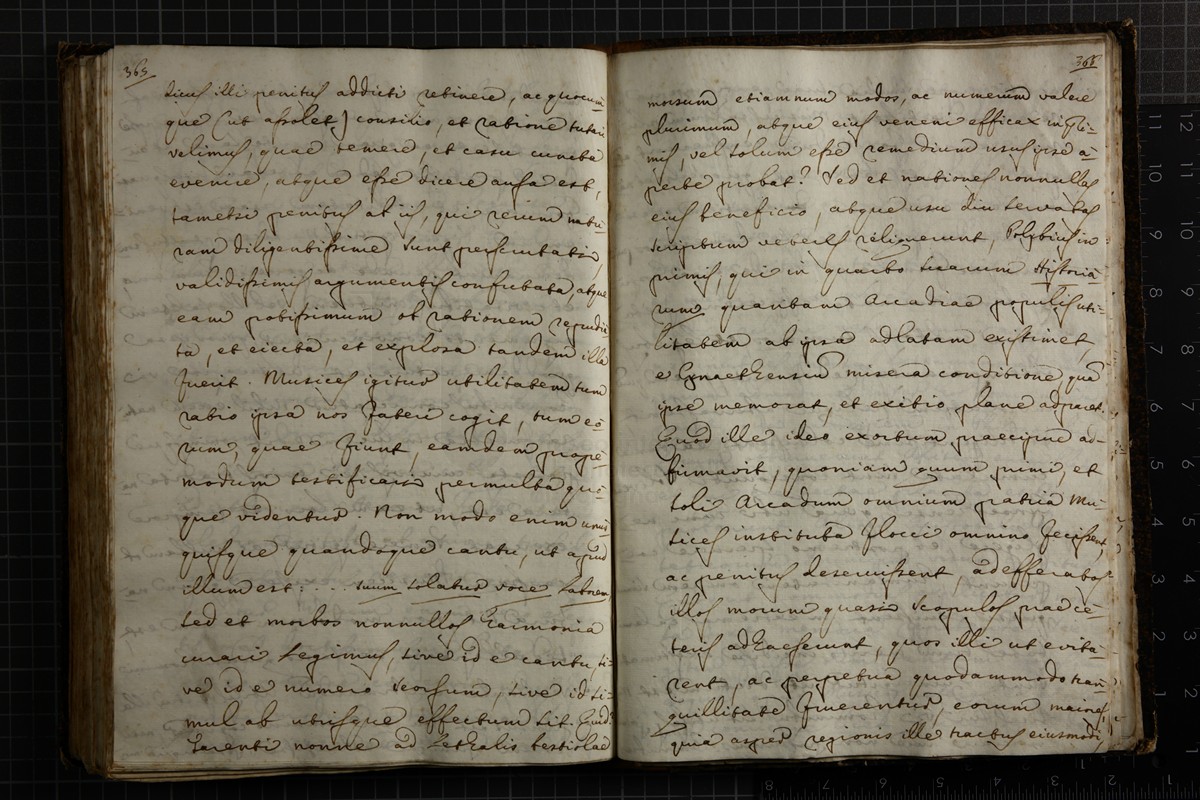 365
sicus illi penitus addicti retinere, ac quocum
que (ut assolet) consilio, et ratione tutari
velimus, quae temere, et casu cuncta
evenire, atque esse dicere ausa est,
tametsi penitus ab iis, qui rerum natu
ram diligentissime sunt perscrutati,
validissimis argumentis confutata, atque
eam potissimum ob rationem repudia
ta, et eiecta, et explosa tandem illa
fuerit. Musices igitur utilitatem tum
ratio ipsa nos fateri cogit, tum eo-
rum, quae fiunt, eamdem prope-
modum testificari permulta quo-
que videntur. Non modo enim unus
quisque quandoque cantu, ut apud
illum est: ... suum solatur voce laborem,
sed et morbos nonnullos harmonia
curari legimus, sive id e cantu, si-
ve id e numero seorsum, sive id si-
mul ab utrisque effectum sit. Quid?
Tarenti nonne ad lethalis bestiolae
morsum etiamnum modos, ac numerum valere
plurimum, atque eius veneni efficax in pri-
mis, vel solum esse remedium usus ipse a-
perte probat? Sed et nationes nonnullas
eius beneficio, atque usu diu servatas
scriptum veteres reliquerunt, Polybius in
primis, qui in quarto suarum Historia-
rum quantam Arcadiae populis uti-
litatem ab ipsa adlatam existimet,
e Cynaethensium misera conditione, quam
ipse memorat, et exitio plane adparet.
Quod ille ideo exortum praecipue ad-
firmavit, quoniam quum primi, et
soli Arcadum omnium patria Mu-
sices instituta flocci omnino fecissent,
ac penitus deseruissent, ad efferatos
illos morum quasi scopulos prae ce-
teris adhaeserunt, quos illi ut evita-
rent, ac perpetua quodammodo tran-
quillitate fruerentur, eorum maiores,
quia asper regionis ille tractus eiusmodi,